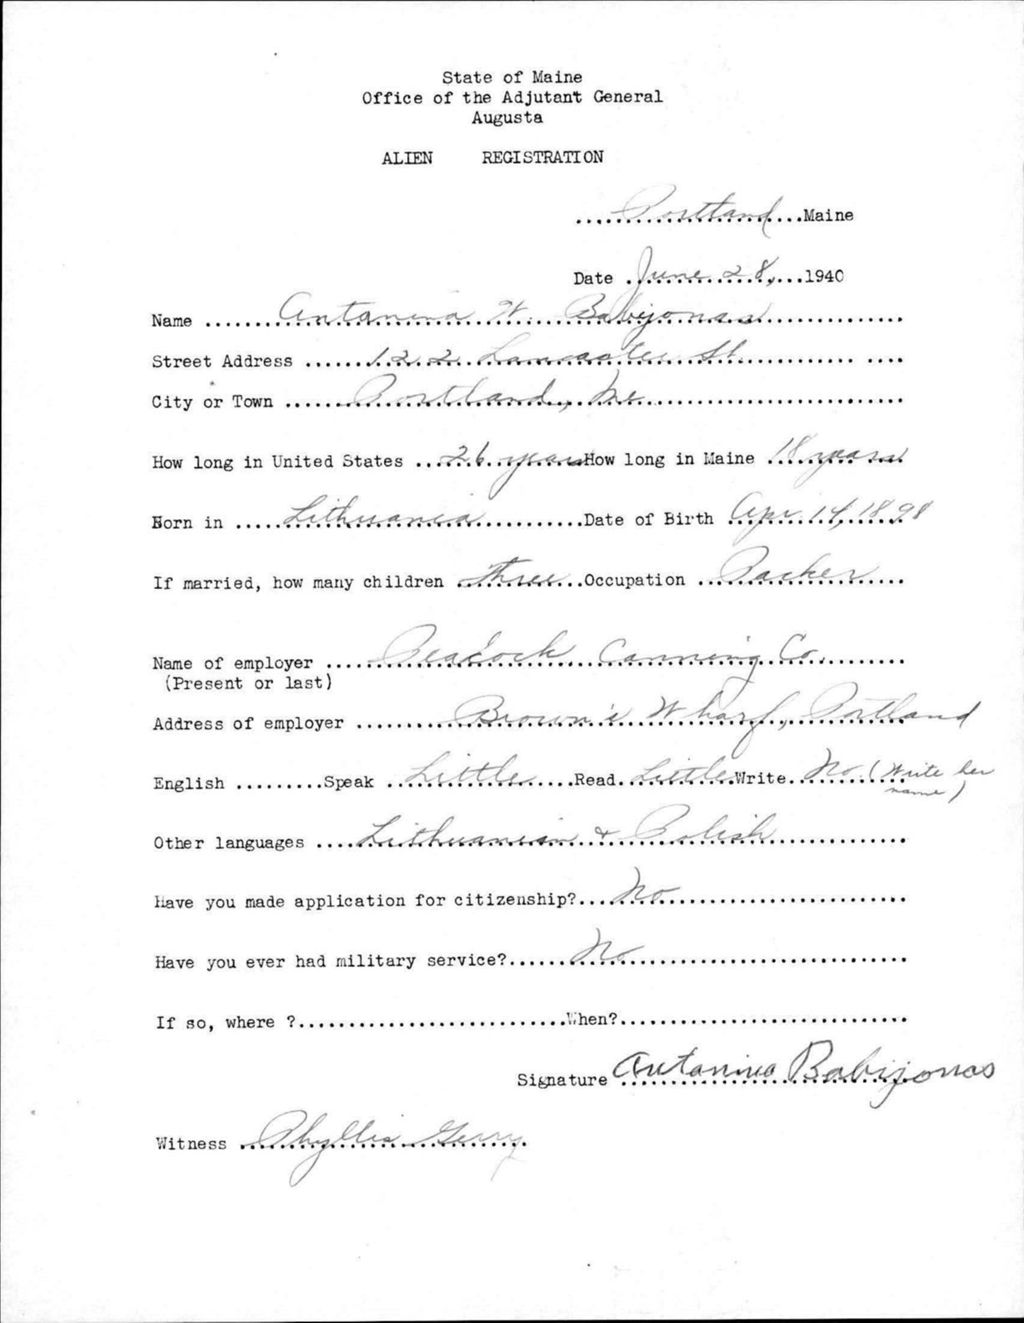 State of Maine
Office of the Adjutant General
Augusta
ALIEN REGISTRATION
....Portland...Maine
Date .June 28,...1940
Name .......Antanina W. Babijonas..............
Street Address ......122 Lancaster St.............
City or Town ......Portland, Me...........................
How long in United States ...26 years How long in Maine .18 years
Born in .....Lithuania...........Date of Birth Apr. 14, 1898
If married, how many children .three...Occupation ..Packer....
Name of employer ....Peacock Canning Co.........
(Present or last)
Address of employer ........Brown's Wharf, Portland
English .........Speak ..Little....Read.Little.Write..No (Write her
name)
Other languages ....Lithuanian & Polish..............
Have you made application for citizenship?...No.........................
Have you ever had military service?......No............................
If so, where ?...........................When?.............................
Signature Antanina Babijonas
Witness .Phyllis Gerry.